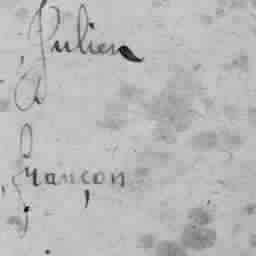 Julien
françon